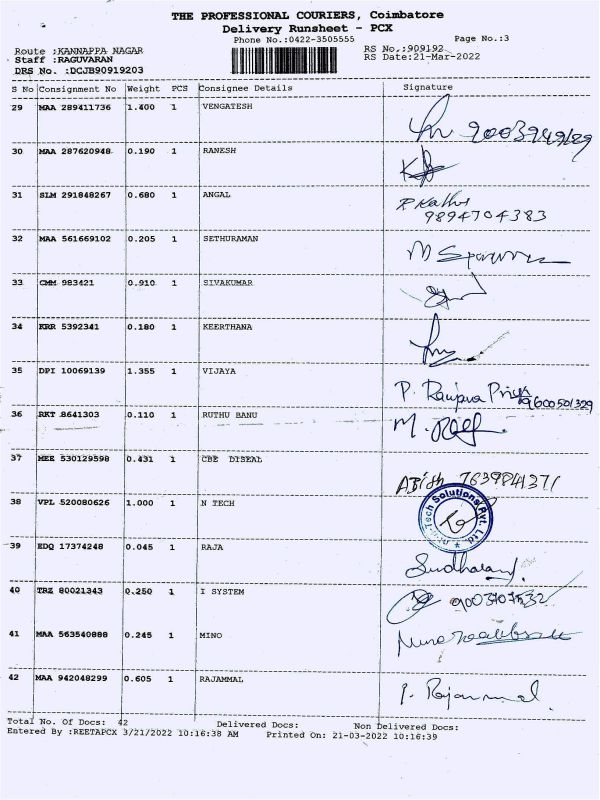 THE PROFESSIONAL COURIERS, Coimbatore
Delivery Runsheet - PCX
Phone No.:0422-3505555 Page No.:3
Route :KANNAPPA NAGAR RS No.:909192
Staff :RAGUVARAN RS Date:21-Mar-2022
DRS No. :DCJB90919203
S No Consignment No Weight PCS Consignee Details Signature
29 MAA 289411736 1.400 1 VENGATESH
30 MAA 287620948 0.190 1 RANESH
31 SLM 291848267 0.680 1 ANGAL
9894704383
32 MAA 561669102 0.205 1 SETHURAMAN
33 CMM 983421 0.910 1 SIVAKUMAR
34 KRR 5392341 0.180 1 KEERTHANA
35 DPI 10069139 1.355 1 VIJAYA
36 RKT 8641303 0.110 1 RUTHU BANU
37 MEE 530129598 0.431 1 CBE DISEAL
38 VPL 520080626 1.000 1 N TECH
Tech Solutions Pvt. Ltd.
39 EDQ 17374248 0.045 1 RAJA
40 TRZ 80021343 0.250 1 I SYSTEM
9003707532
41 MAA 563540888 0.245 1 MINO
42 MAA 942048299 0.605 1 RAJAMMAL
P. Rajammal
Total No. Of Docs: 42 Delivered Docs: Non Delivered Docs:
Entered By :REETAPCX 3/21/2022 10:16:38 AM Printed On: 21-03-2022 10:16:39